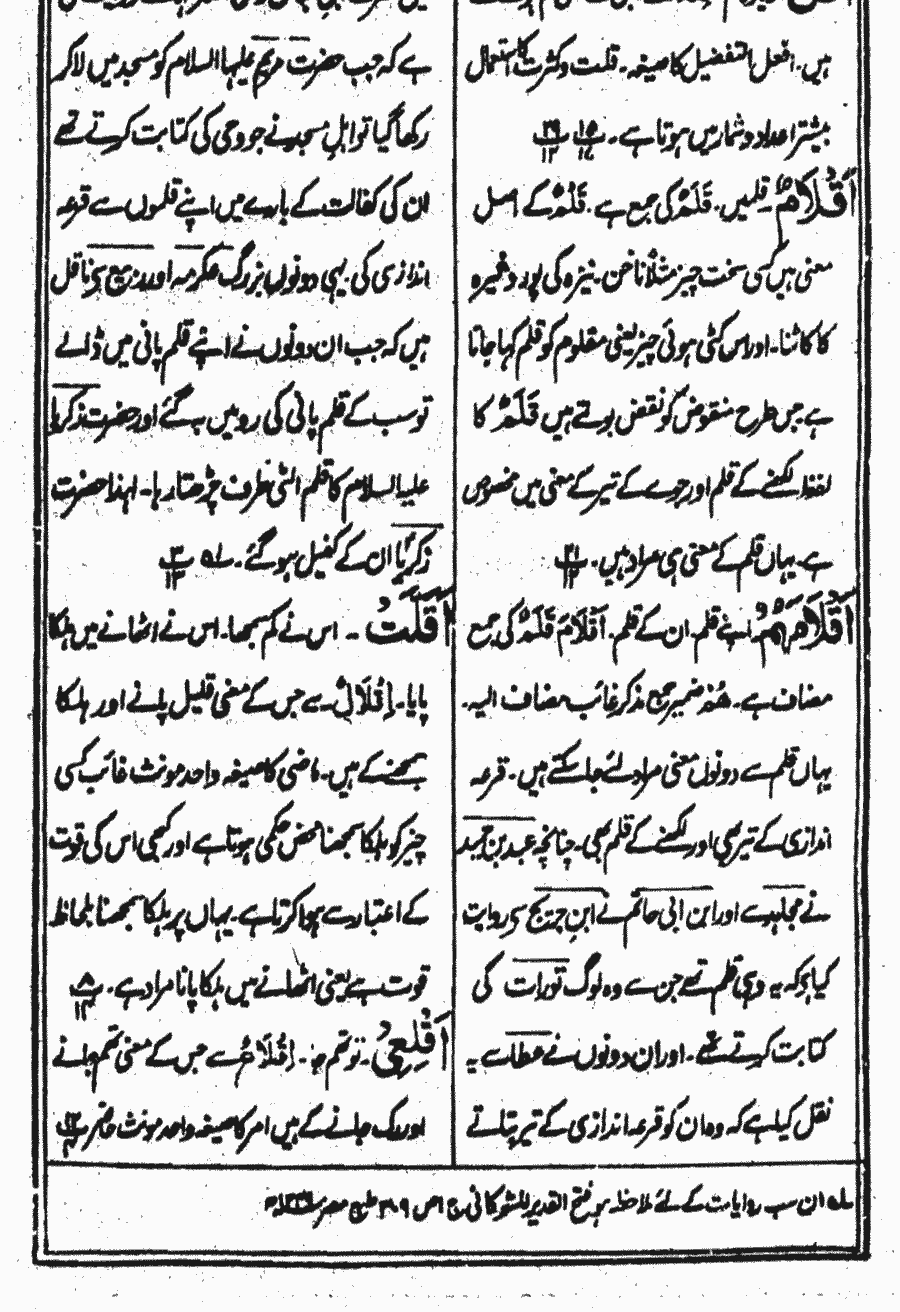 ہیں۔ افعل التفضیل کا صیغہ۔ قلت و کثرت کا استعمال
بیشتر اعداد و شمار میں ہوتا ہے۔
اَقْلَامٌ۔ قلمیں۔ قَلَمٌ کی جمع ہے۔ قَلَمٌ کے اصل
معنی ہیں کسی سخت چیز مثلاً ناخن۔ نیزہ کی پور وغیرہ
کا کاٹنا۔ اور اس کٹی ہوئی چیز یعنی مقلوم کو قلم کہا جاتا
ہے جس طرح منقوض کو نقض بولتے ہیں قَلَمٌ کا
لفظ لکھنے کے قلم اور جوے کے تیر کے معنی میں مخصوص
ہے۔ یہاں قلم کے معنی ہی مراد ہیں۔
اَقْلَامَهُمْ۔ اپنے قلم۔ ان کے قلم۔ اَقْلَامَ قَلَمٌ کی جمع
مضاف ہے۔ هُمْ ضمیر جمع مذکر غائب مضاف الیہ۔
یہاں قلم سے دونوں معنی مراد لئے جا سکتے ہیں۔ قرعہ
اندازی کے تیر بھی اور لکھنے کے قلم بھی۔ چنانچہ عبد بن حمید
نے مجاہد سے اور ابن ابی حاتم نے ابن جریج سے روایت
کیا ہے کہ یہ وہی قلم تھے جن سے وہ لوگ تورات کی
کتابت کرتے تھے۔ اور ان دونوں نے عطا سے یہ
نقل کیا ہے کہ وہ ان کو قرعہ اندازی کے تیر بتلاتے
ہے کہ جب حضرت مریم علیہا السلام کو مسجد میں لا کر
رکھا گیا تو اہل مسجد نے جو وحی کی کتابت کرتے تھے
ان کی کفالت کے بارے میں اپنے قلموں سے قرعہ
اندازی کی۔ یہی دونوں بزرگ عکرمہ اور ربیع سے ناقل
ہیں کہ جب ان دونوں نے اپنے قلم پانی میں ڈالے
تو سب کے قلم پانی کی رو میں بہ گئے اور حضرت زکریا
علیہ السلام کا قلم الٹی طرف چڑھتا رہا۔ لہذا حضرت
زکریا ان کے کفیل ہو گئے۔ لہ
اَقَلَّتْ۔ اس نے کم سمجھا۔ اس نے اٹھانے میں ہلکا
پایا۔ اِقْلَالٌ۔ سے جس کے معنی قلیل پانے اور ہلکا
سمجھنے کے ہیں۔ ماضی کا صیغہ واحد مونث غائب کسی
چیز کو ہلکا سمجھنا محض حکمی ہوتا ہے اور کبھی اس کی قوت
کے اعتبار سے ہوا کرتا ہے۔ یہاں پر ہلکا سمجھنا بلحاظ
قوت ہے یعنی اٹھانے میں ہلکا پانا مراد ہے۔
اَقْلِعِیْ۔ تو تھم جا۔ اِقْلَاعٌ سے جس کے معنی تھم جانے
اور رک جانے کے ہیں امر کا صیغہ واحد مونث حاضر
لہ ان سب روایات کے لئے ملاحظہ ہو فتح القدیر للشوکانی ج ۱ ص ۳۰۹ طبع مصر